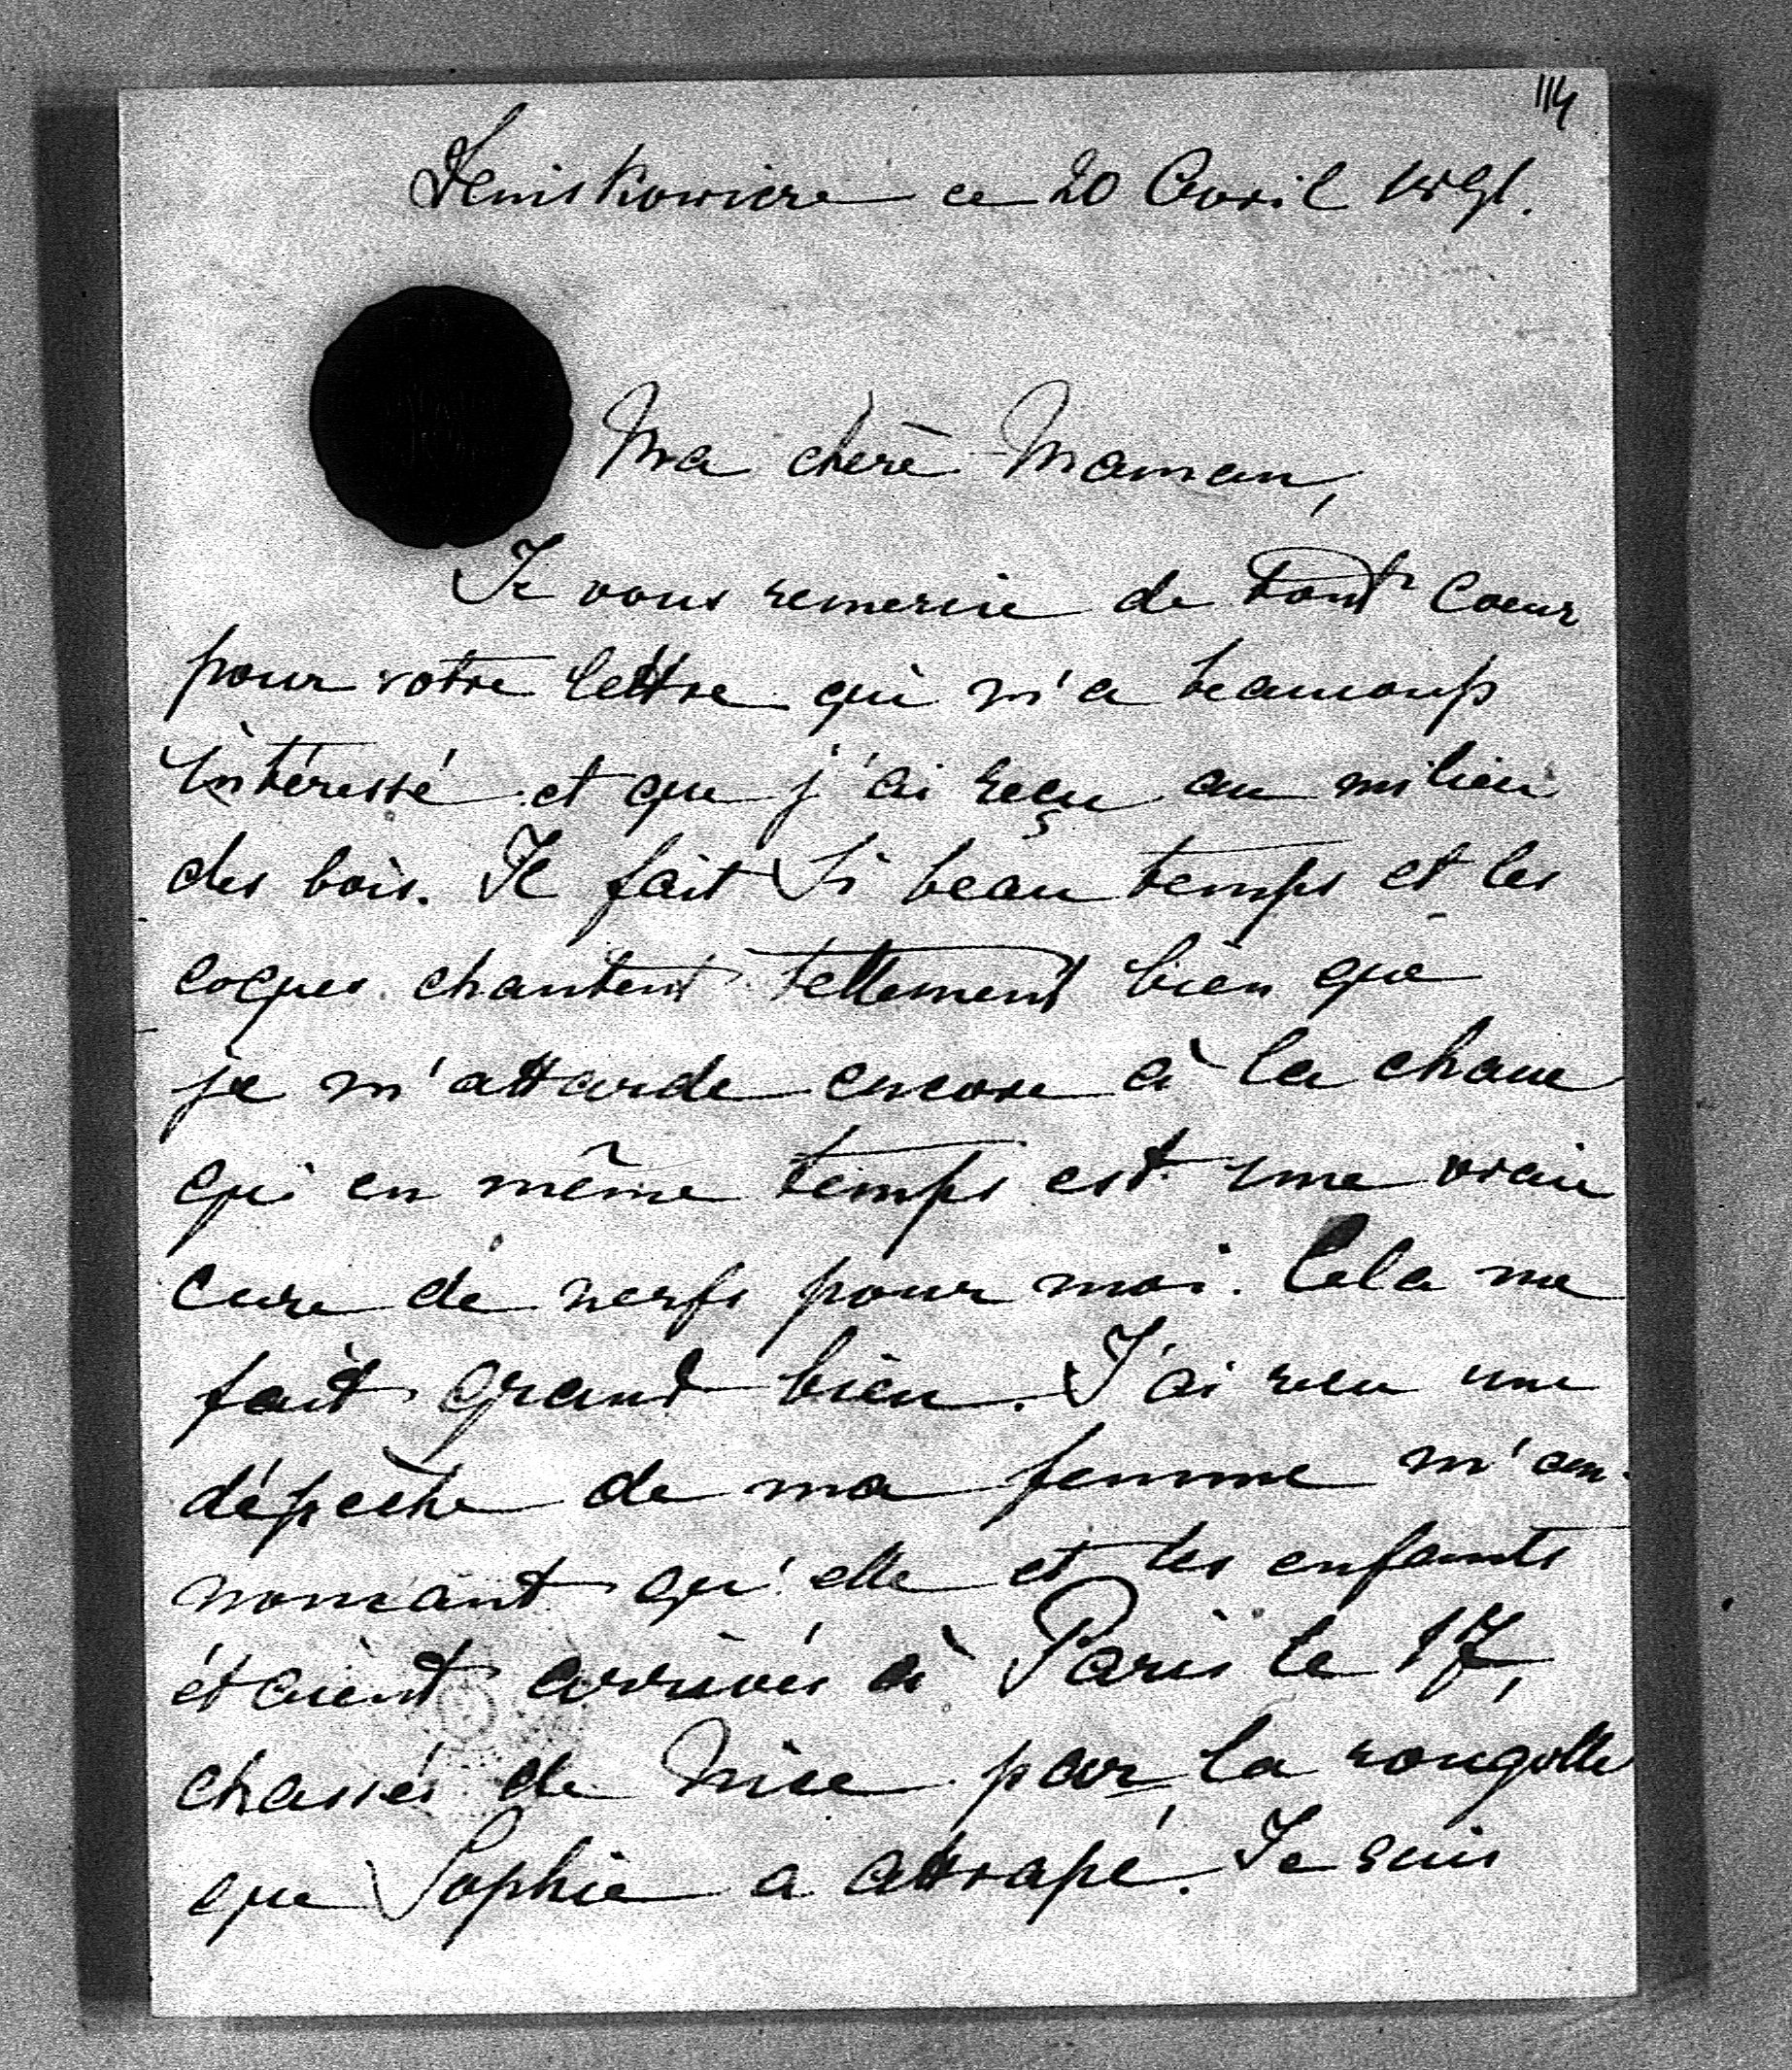 114
Deniskowicze ce 20 Avril 1891.
Ma chère Maman,
Je vous remercie de tout coeur
pour votre lettre qui m'a beaucoup
intéressé et que j'ai reçu au milieu
des bois. Il fait si beau temps et les
coques chantent tellement bien que
je m'attarde encore à la chasse
qui en même temps est une vraie
cure de nerfs pour moi. Cela me
fait grand bien. J'ai recu une
dépêche de ma femme m'an-
noncant qu'elle et les enfants
étaient arrivés à Paris le 17,
chassés de Nice par la rougolle
que Sophie a attrapé. Je suis